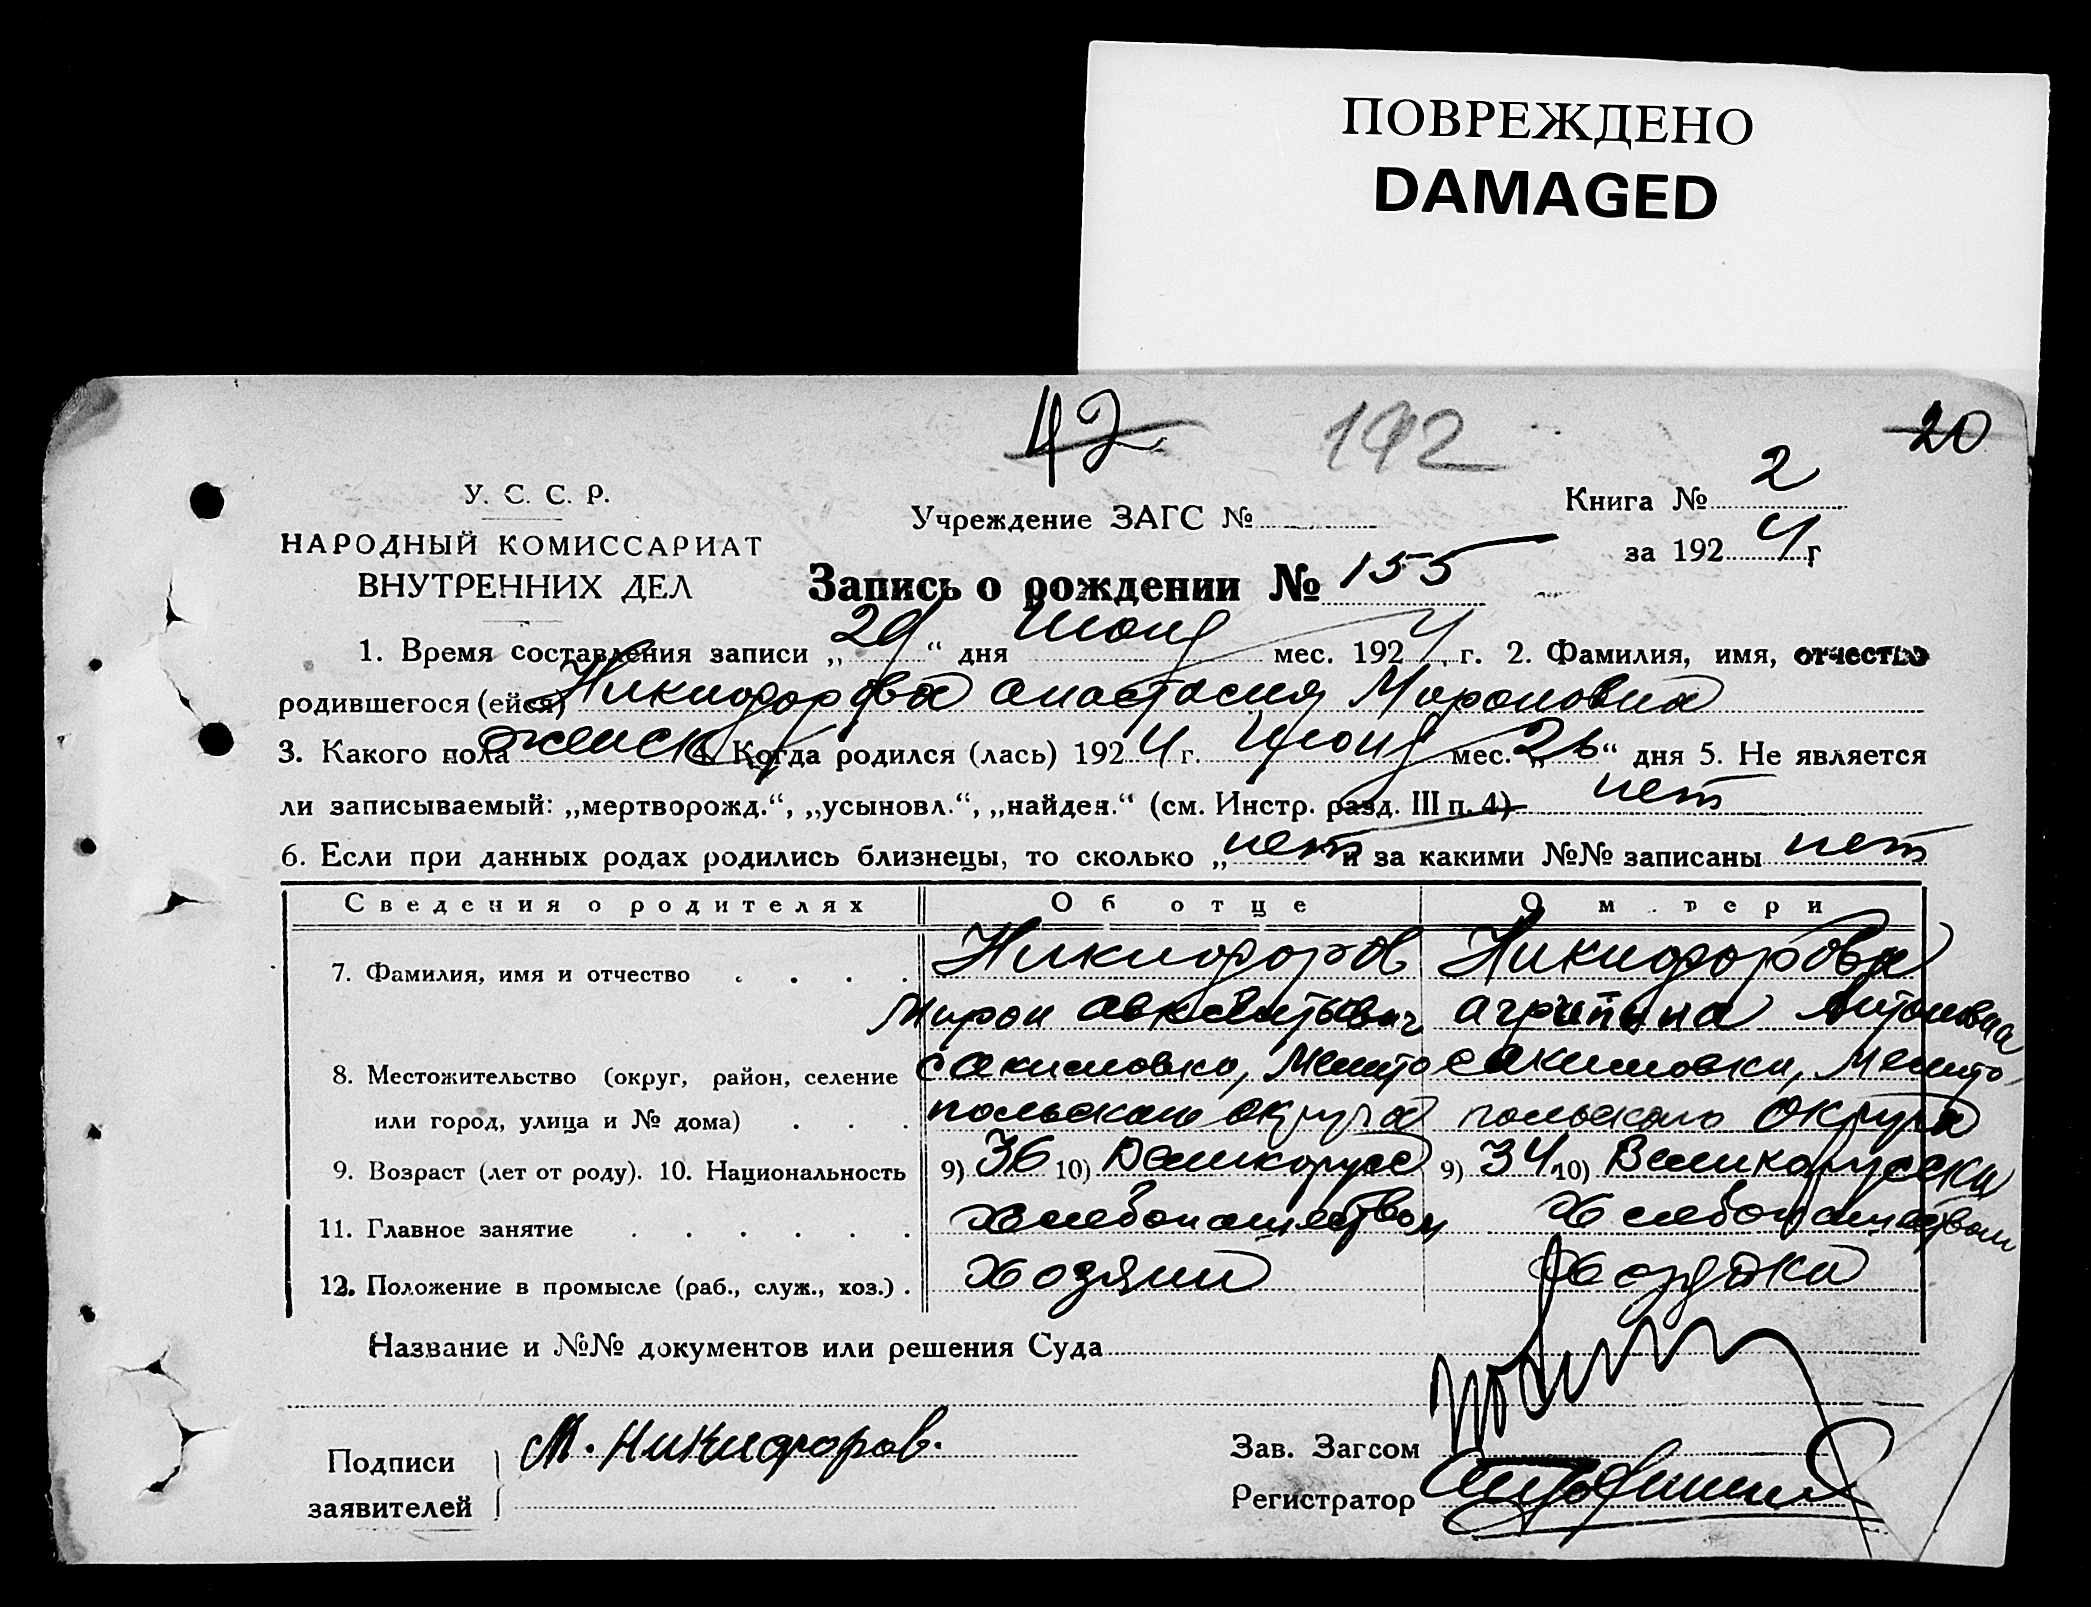 ПОВРЕЖДЕНО
DAMAGED
42 192 20
У. С. С. Р.
НАРОДНЫЙ КОМИССАРИАТ
ВНУТРЕННИХ ДЕЛ
Учреждение ЗАГС №
Книга № 2
за 1924 г
Запись о рождении № 155
1. Время составления записи „29“ дня Июня мес. 1924 г. 2. Фамилия, имя, отчество
родившегося (ейся) Никифорова Анастасия Мироновна
3. Какого пола женск 4. Когда родился (лась) 1924 г. Июня мес. „26“ дня 5. Не является
ли записываемый: „мертворожд.“, „усыновл.“, „найден.“ (см. Инстр. разд. III п. 4) нет
6. Если при данных родах родились близнецы, то сколько „нет и за какими №№ записаны нет
Сведения о родителях Об отце О м тери
7. Фамилия, имя и отчество Никифоров Никифорова
Мирон Агрипина Антоновна
8. Местожительство (округ, район, селение с Акимовка, Мелито с Акимовки, Мелито-
или город, улица и № дома) польского округа польского округа
9. Возраст (лет от роду). 10. Национальность 9) 36 10) Великорусс 9) 34 10) Великорусски
11. Главное занятие хлебопашеством хлебопашеством
12. Положение в промысле (раб., служ., хоз.) хозяин хозяйка
Название и №№ документов или решения Суда
Подписи заявителей М. Никифоров.
Зав. Загсом
Регистратор